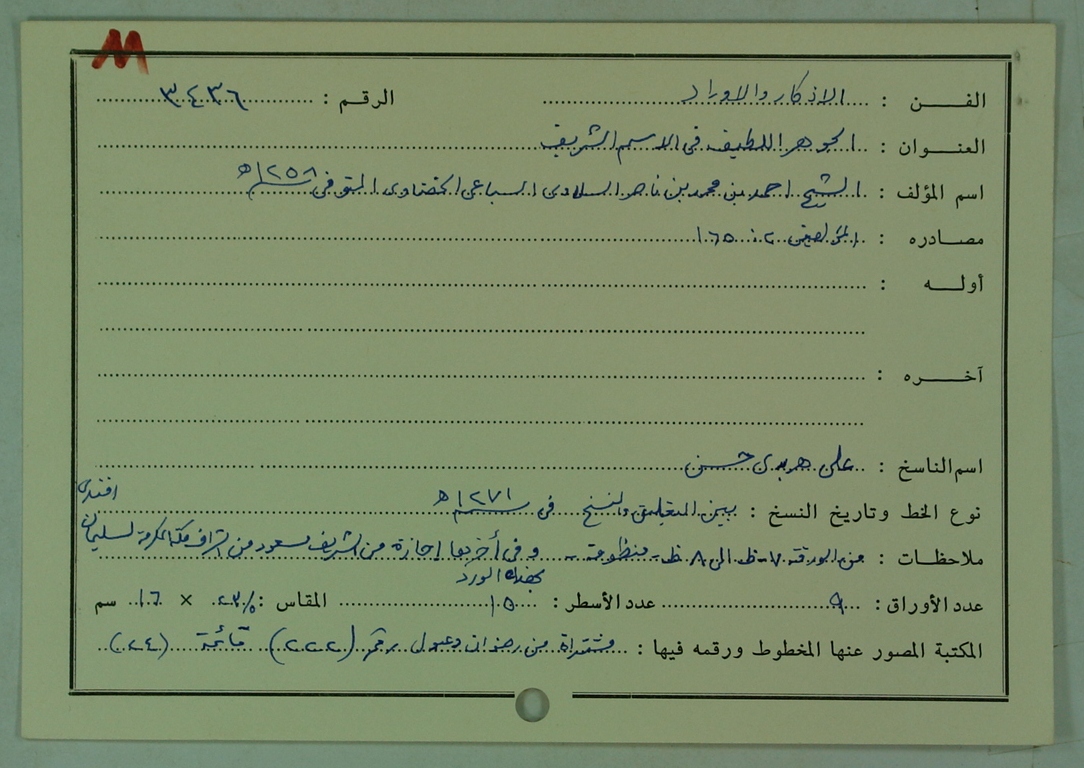 M
الفـــن : الاذكار والاوراد الرقـم : ٣٤٣٦
العنــوان : الجوهر اللطيف في الاسم الشريف
اسم المؤلف : الشيخ احمد بن محمد بن ناصر السلاوى السباعى الحضناوى المتوفى ١٢٥٨ هـ
مصــادره : المؤلفين ٢ : ١٦٥
أولـــه :
آخـــره :
اسم الناسخ : على هربدى حسن
نوع الخط وتاريخ النسخ : بين التعليق والنسخ في ١٢٧١ هـ
ملاحظات : من الورقة ٧-ظ الى ٨ ظ- منظومة - و في أخرها إجازة من الشريف مسعود من اشراف مكة المكرمة لسليمان افندى
بهذه الورد
عدد الأوراق : ٩ عدد الأسطر : ١٥ المقاس : ٢٣/٥ × ١٦ سم
المكتبة المصور عنها المخطوط ورقمه فيها : مشتراة من رضوان دعبول برقم (٢٢٢) قائمة (٢٤)